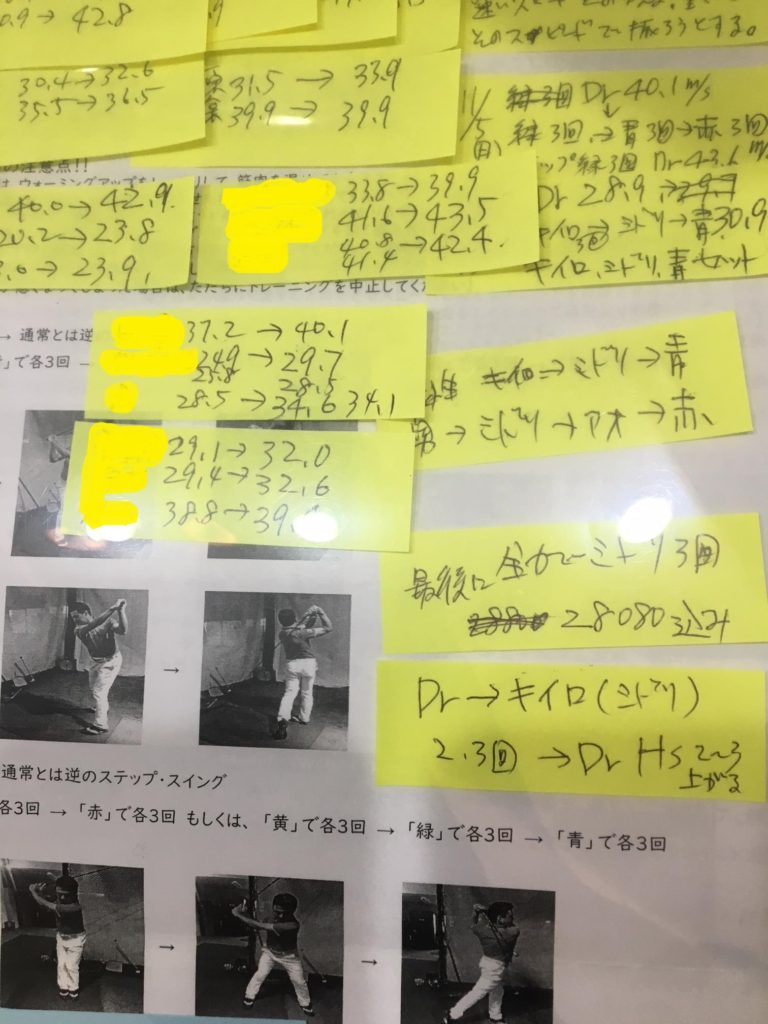 .9→42.8
30.4→32.6
35.5→36.5
31.5→33.9
39.9→39.9
そのスピードで振ろうとする。
11/5
練3回 Dr 40.1 m/s
練3回→青3回→赤3回
プ練3回 Dr 43.6
Dr 28.9
キイロ3回→ミドリ→青30.9
キイロ、ミドリ、青セット
の注意点!!
40.0→42.9.
20.2→23.8
.0→23.9,
33.8→39.9
41.6→43.5
40.8→42.4.
41.4
ただちにトレーニングを中止してくだ
37.2→40.1
249→29.7
25.8 28.5
28.5→34.6 34.1
→ 通常とは逆の
で各3回
キイロ→ミドリ→青
→ミドリ→アオ→赤
29.1→32.0
29.4→32.6
38.8→39.
最後に全力でミドリ3回
28080込み
Dr→キイロ(ミドリ)
2.3回→Dr HS 2〜3
上がる
通常とは逆のステップ・スイング
各3回 → 「赤」で各3回 もしくは、「黄」で各3回 → 「緑」で各3回 → 「青」で各3回